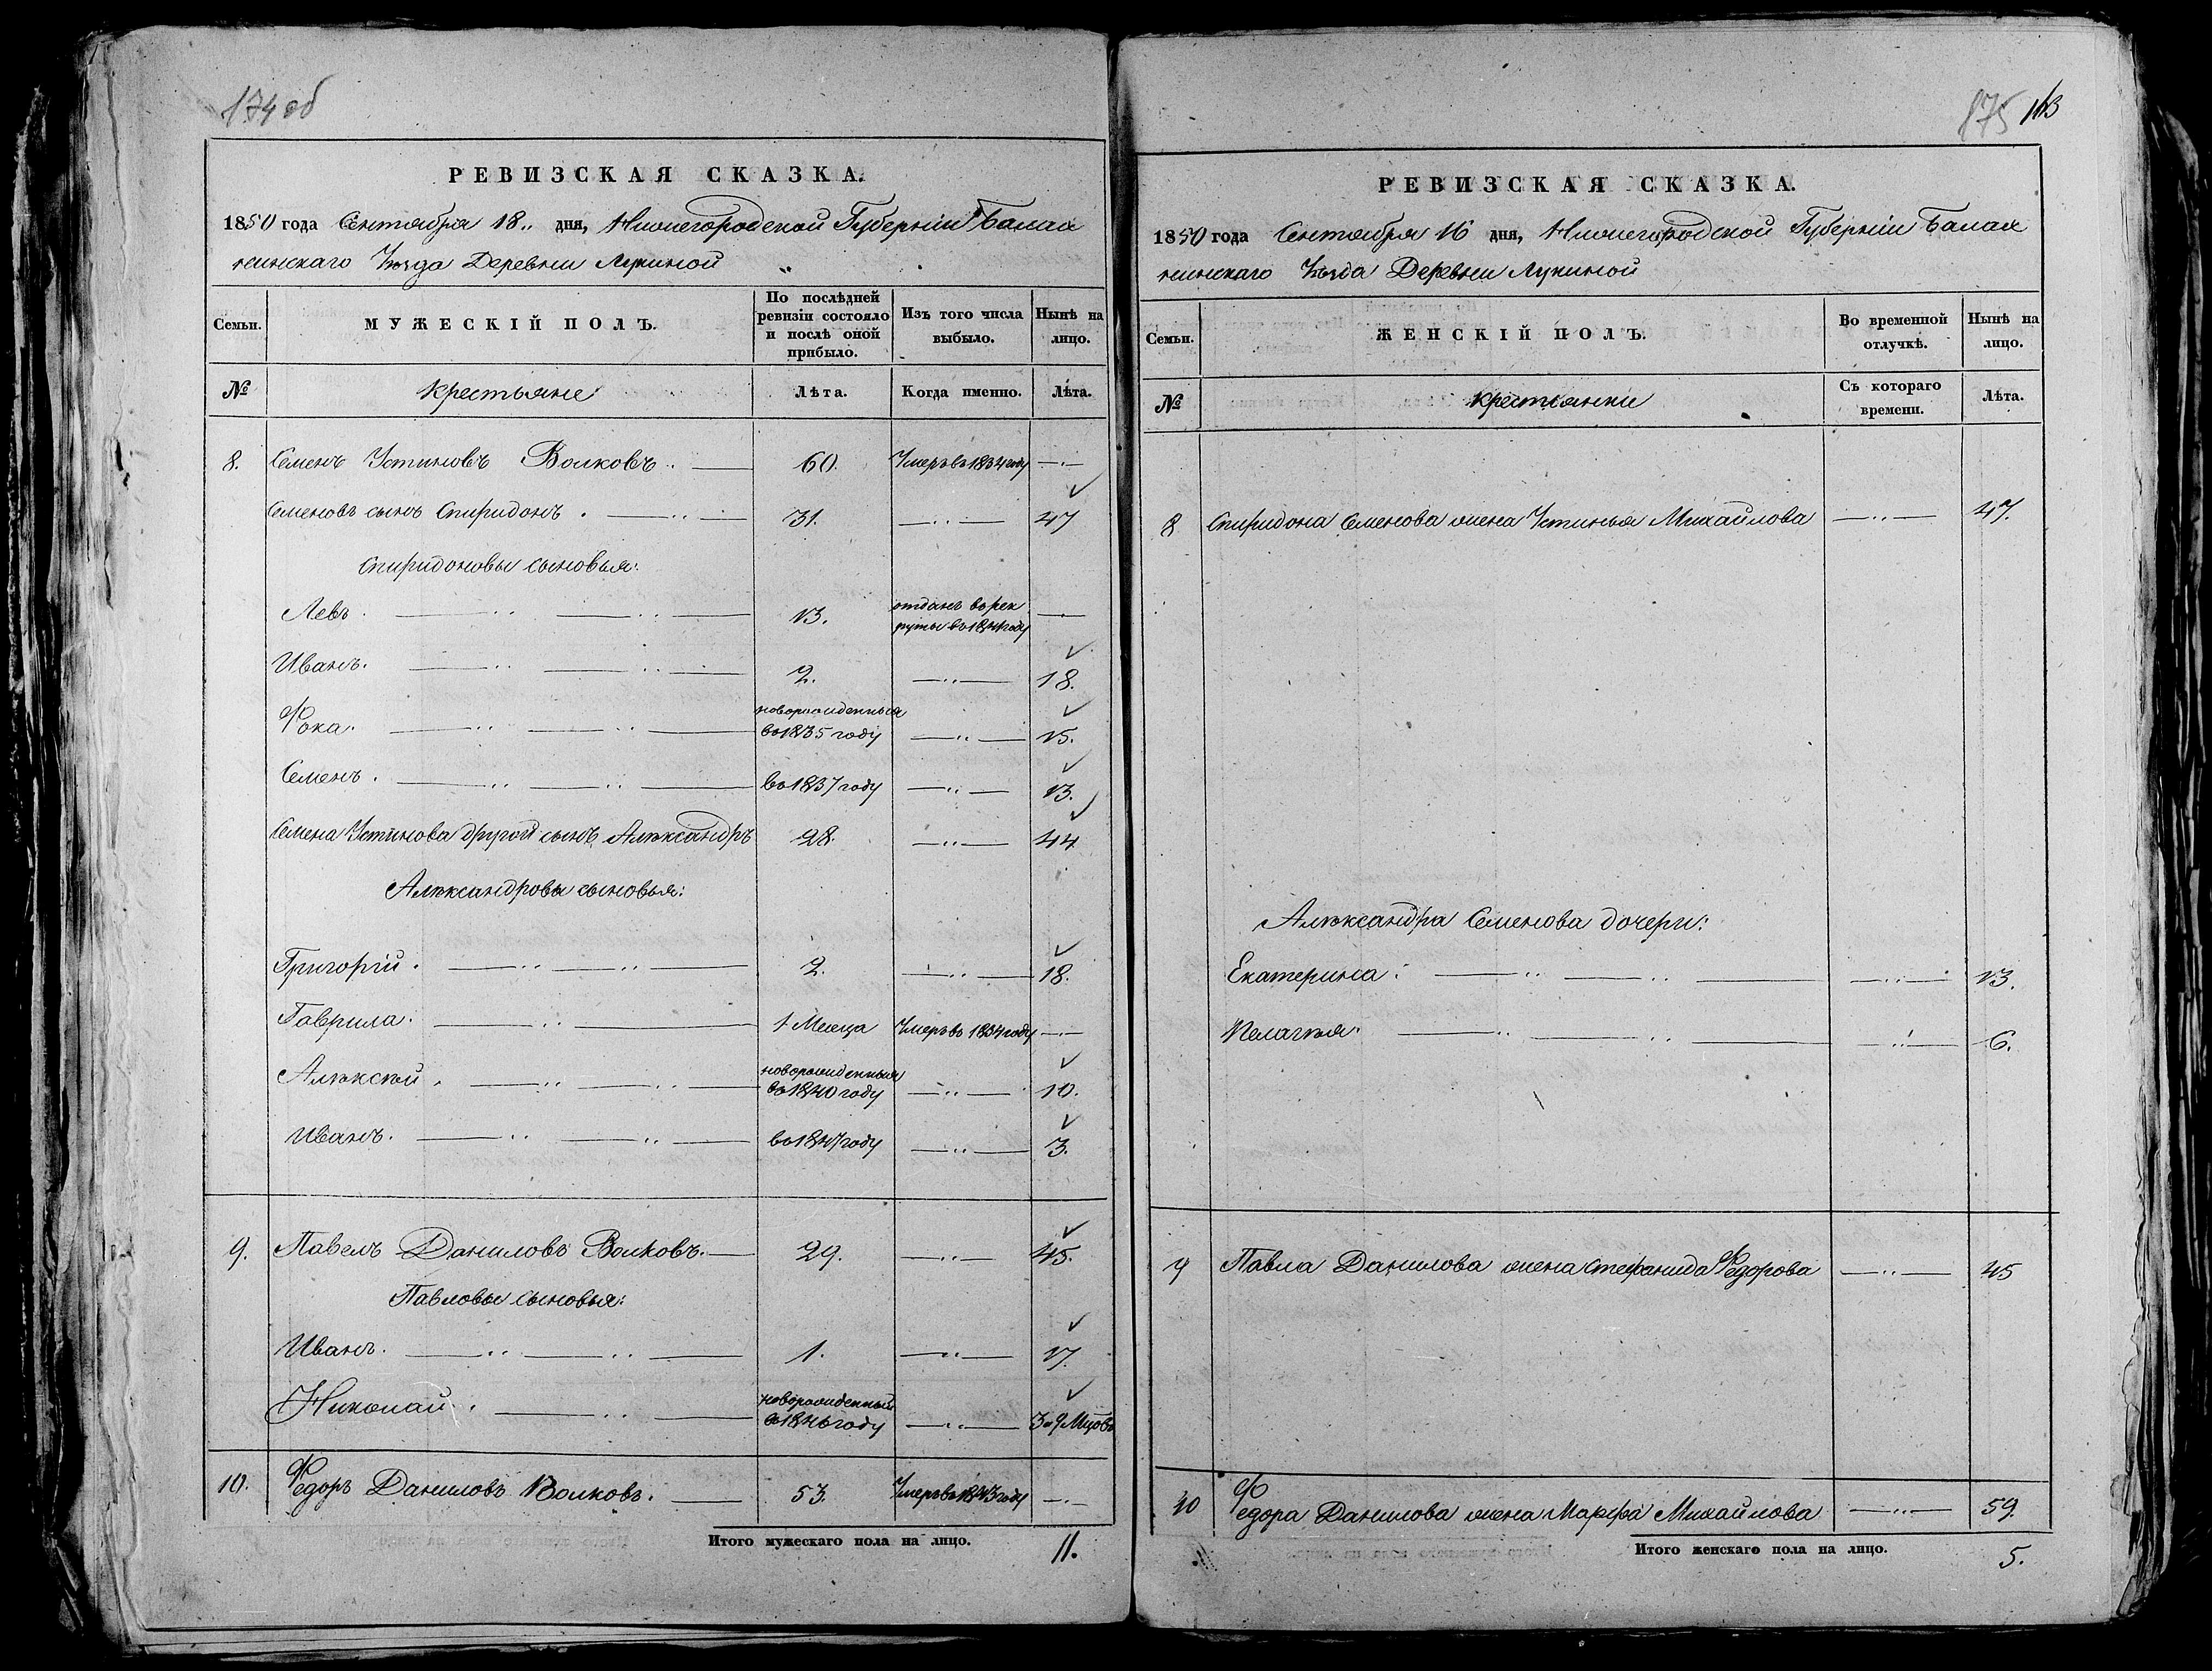 174 об
РЕВИЗСКАЯ СКАЗКА.
1850 года Сентября 18 „ дня, Нижегородской Губерніи Балах
нинскаго Уѣзда Деревни Лукиной
Семьи. МУЖЕСКІЙ ПОЛЪ. По послѣдней ревизіи состояло и послѣ оной прибыло. Изъ того числа выбыло. Нынѣ на лицо.
№ Крестьяне Лѣта. Когда именно. Лѣта.
8. Семенъ Устиновъ Волковъ. 60. Умеръ въ 1834 году
Семеновъ сынъ Спиридонъ. 31. 47
Спиридоновы сыновья:
Левъ. 13. отданъ въ рек
руты въ 1841 году
Иванъ. 2. 18.
Фока. новорожденныя
въ 1835 году 15.
Семенъ. въ 1837 году 13.
Семена Устинова другой сынъ Алѣксандръ 28. 44
Алѣксандровы сыновья:
Григорій. 2. 18.
Гаврила. 1 Месеца Умеръ въ 1834 году
Алѣксѣй. новорожденныя
въ 1840 году 10.
Иванъ. въ 1847 году 3.
9. Павелъ Даниловъ Волковъ. 29. 45.
Павловы сыновья:
Иванъ. 1. 17.
Николай. новорожденный
въ 1846 году 3 и 9 Мцовъ
10. Федоръ Даниловъ Волковъ. 53. Умеръ въ 1843 году
Итого мужескаго пола на лицо. 11.
175 113
РЕВИЗСКАЯ СКАЗКА.
1850 года Сентября 16 дня, Нижегородской Губерніи Балах
нинскаго Уѣзда Деревни Лукиной
Семьи. ЖЕНСКІЙ ПОЛЪ. Во временной отлучкѣ. Нынѣ на лицо.
№ Крестьянки Съ котораго времени. Лѣта.
8 Спиридона Семенова жена Устинья Михайлова 47.
Алѣксандра Семенова дочери:
Екатерина. 13.
Пелагѣя. 6.
9 Павла Данилова жена Стефанида Федорова 45
10 Федора Данилова жена Марфа Михайлова 59.
Итого женскаго пола на лицо. 5.